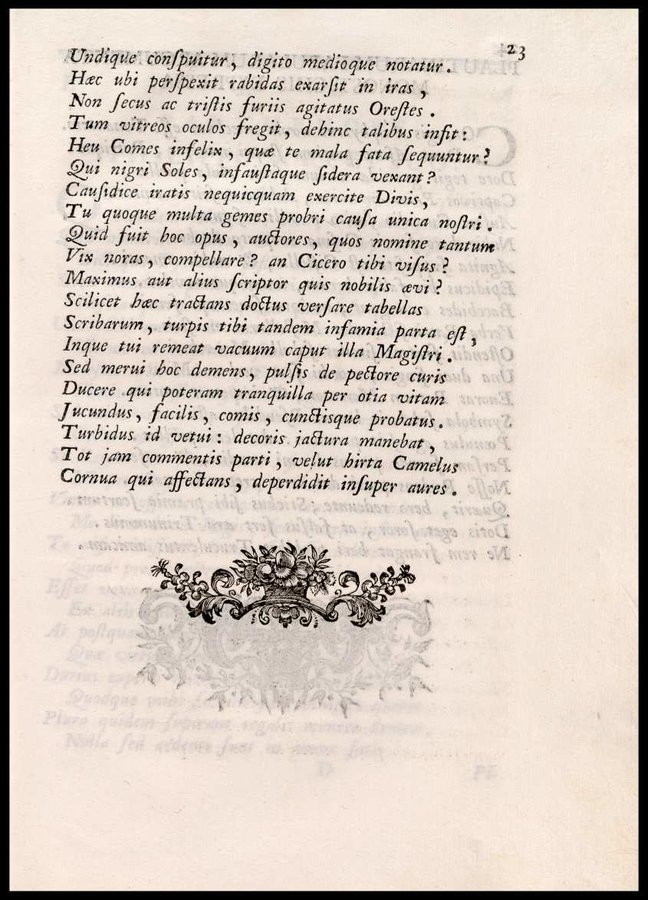 23
Undique conſpuitur, digito medioque notatur.
Hæc ubi perſpexit rabidas exarſit in iras,
Non ſecus ac triſtis furiis agitatus Oreſtes.
Tum vitreos oculos fregit, dehinc talibus inſit:
Heu Comes infelix, quæ te mala fata ſequuntur?
Qui nigri Soles, infauſtaque ſidera vexant?
Cauſidice iratis nequicquam exercite Divis,
Tu quoque multa gemes probri cauſa unica noſtri.
Quid fuit hoc opus, auctores, quos nomine tantum
Vix noras, compellare? an Cicero tibi viſus?
Maximus aut alius ſcriptor quis nobilis ævi?
Scilicet hæc tractans doctus verſare tabellas
Scribarum, turpis tibi tandem infamia parta eſt,
Inque tui remeat vacuum caput illa Magiſtri.
Sed merui hoc demens, pulſis de pectore curis
Ducere qui poteram tranquilla per otia vitam
Jucundus, facilis, comis, cunctisque probatus.
Turbidus id vetui: decoris jactura manebat,
Tot jam commentis parti, velut hirta Camelus
Cornua qui affectans, deperdidit inſuper aures.